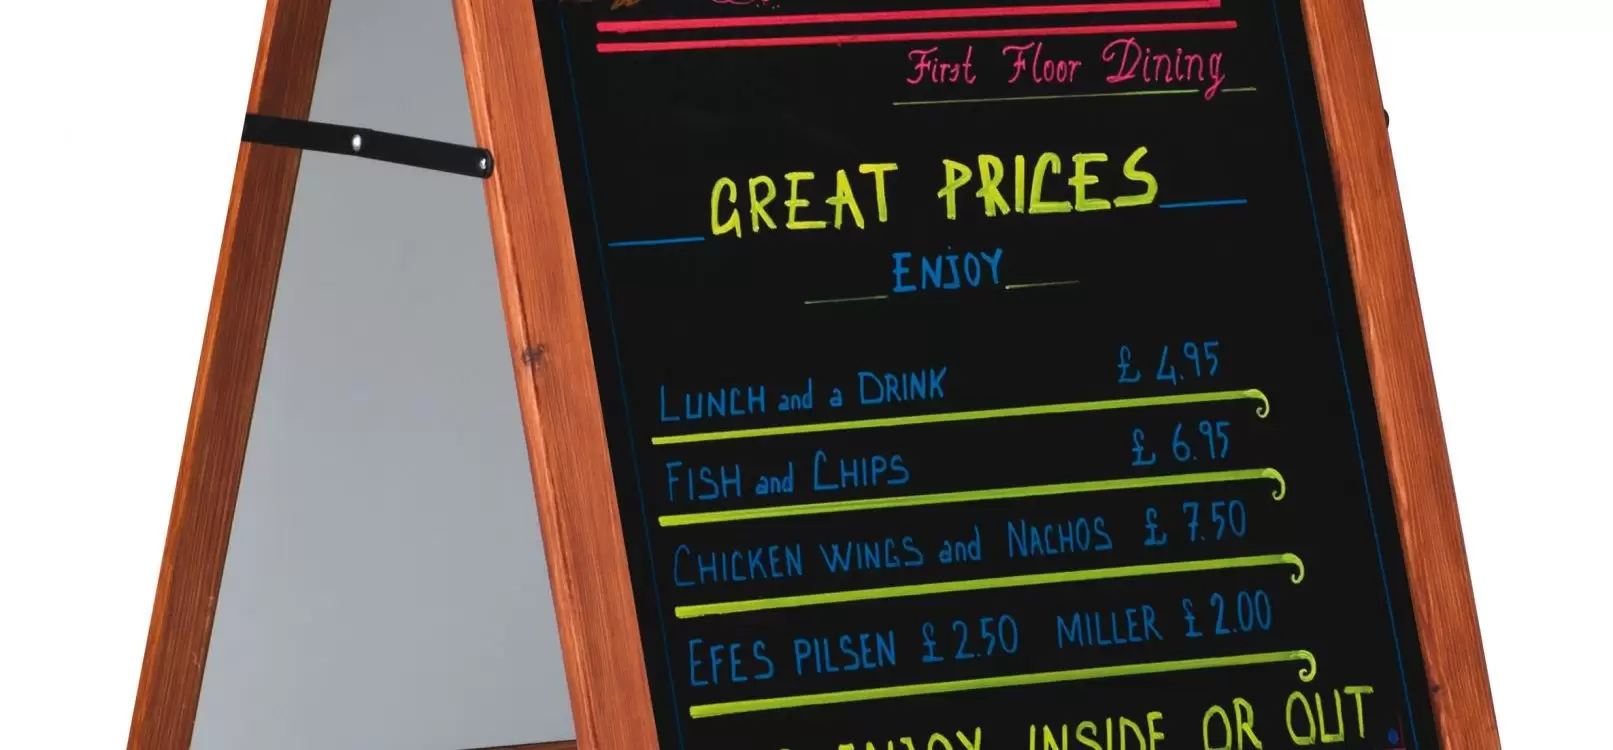 First Floor Dining
GREAT PRICES
ENJOY
LUNCH and a DRINK £ 4.95
FISH and CHIPS £ 6.95
CHICKEN WINGS and NACHOS £ 7.50
EFES PILSEN £ 2.50 MILLER £ 2.00
ENJOY INSIDE OR OUT